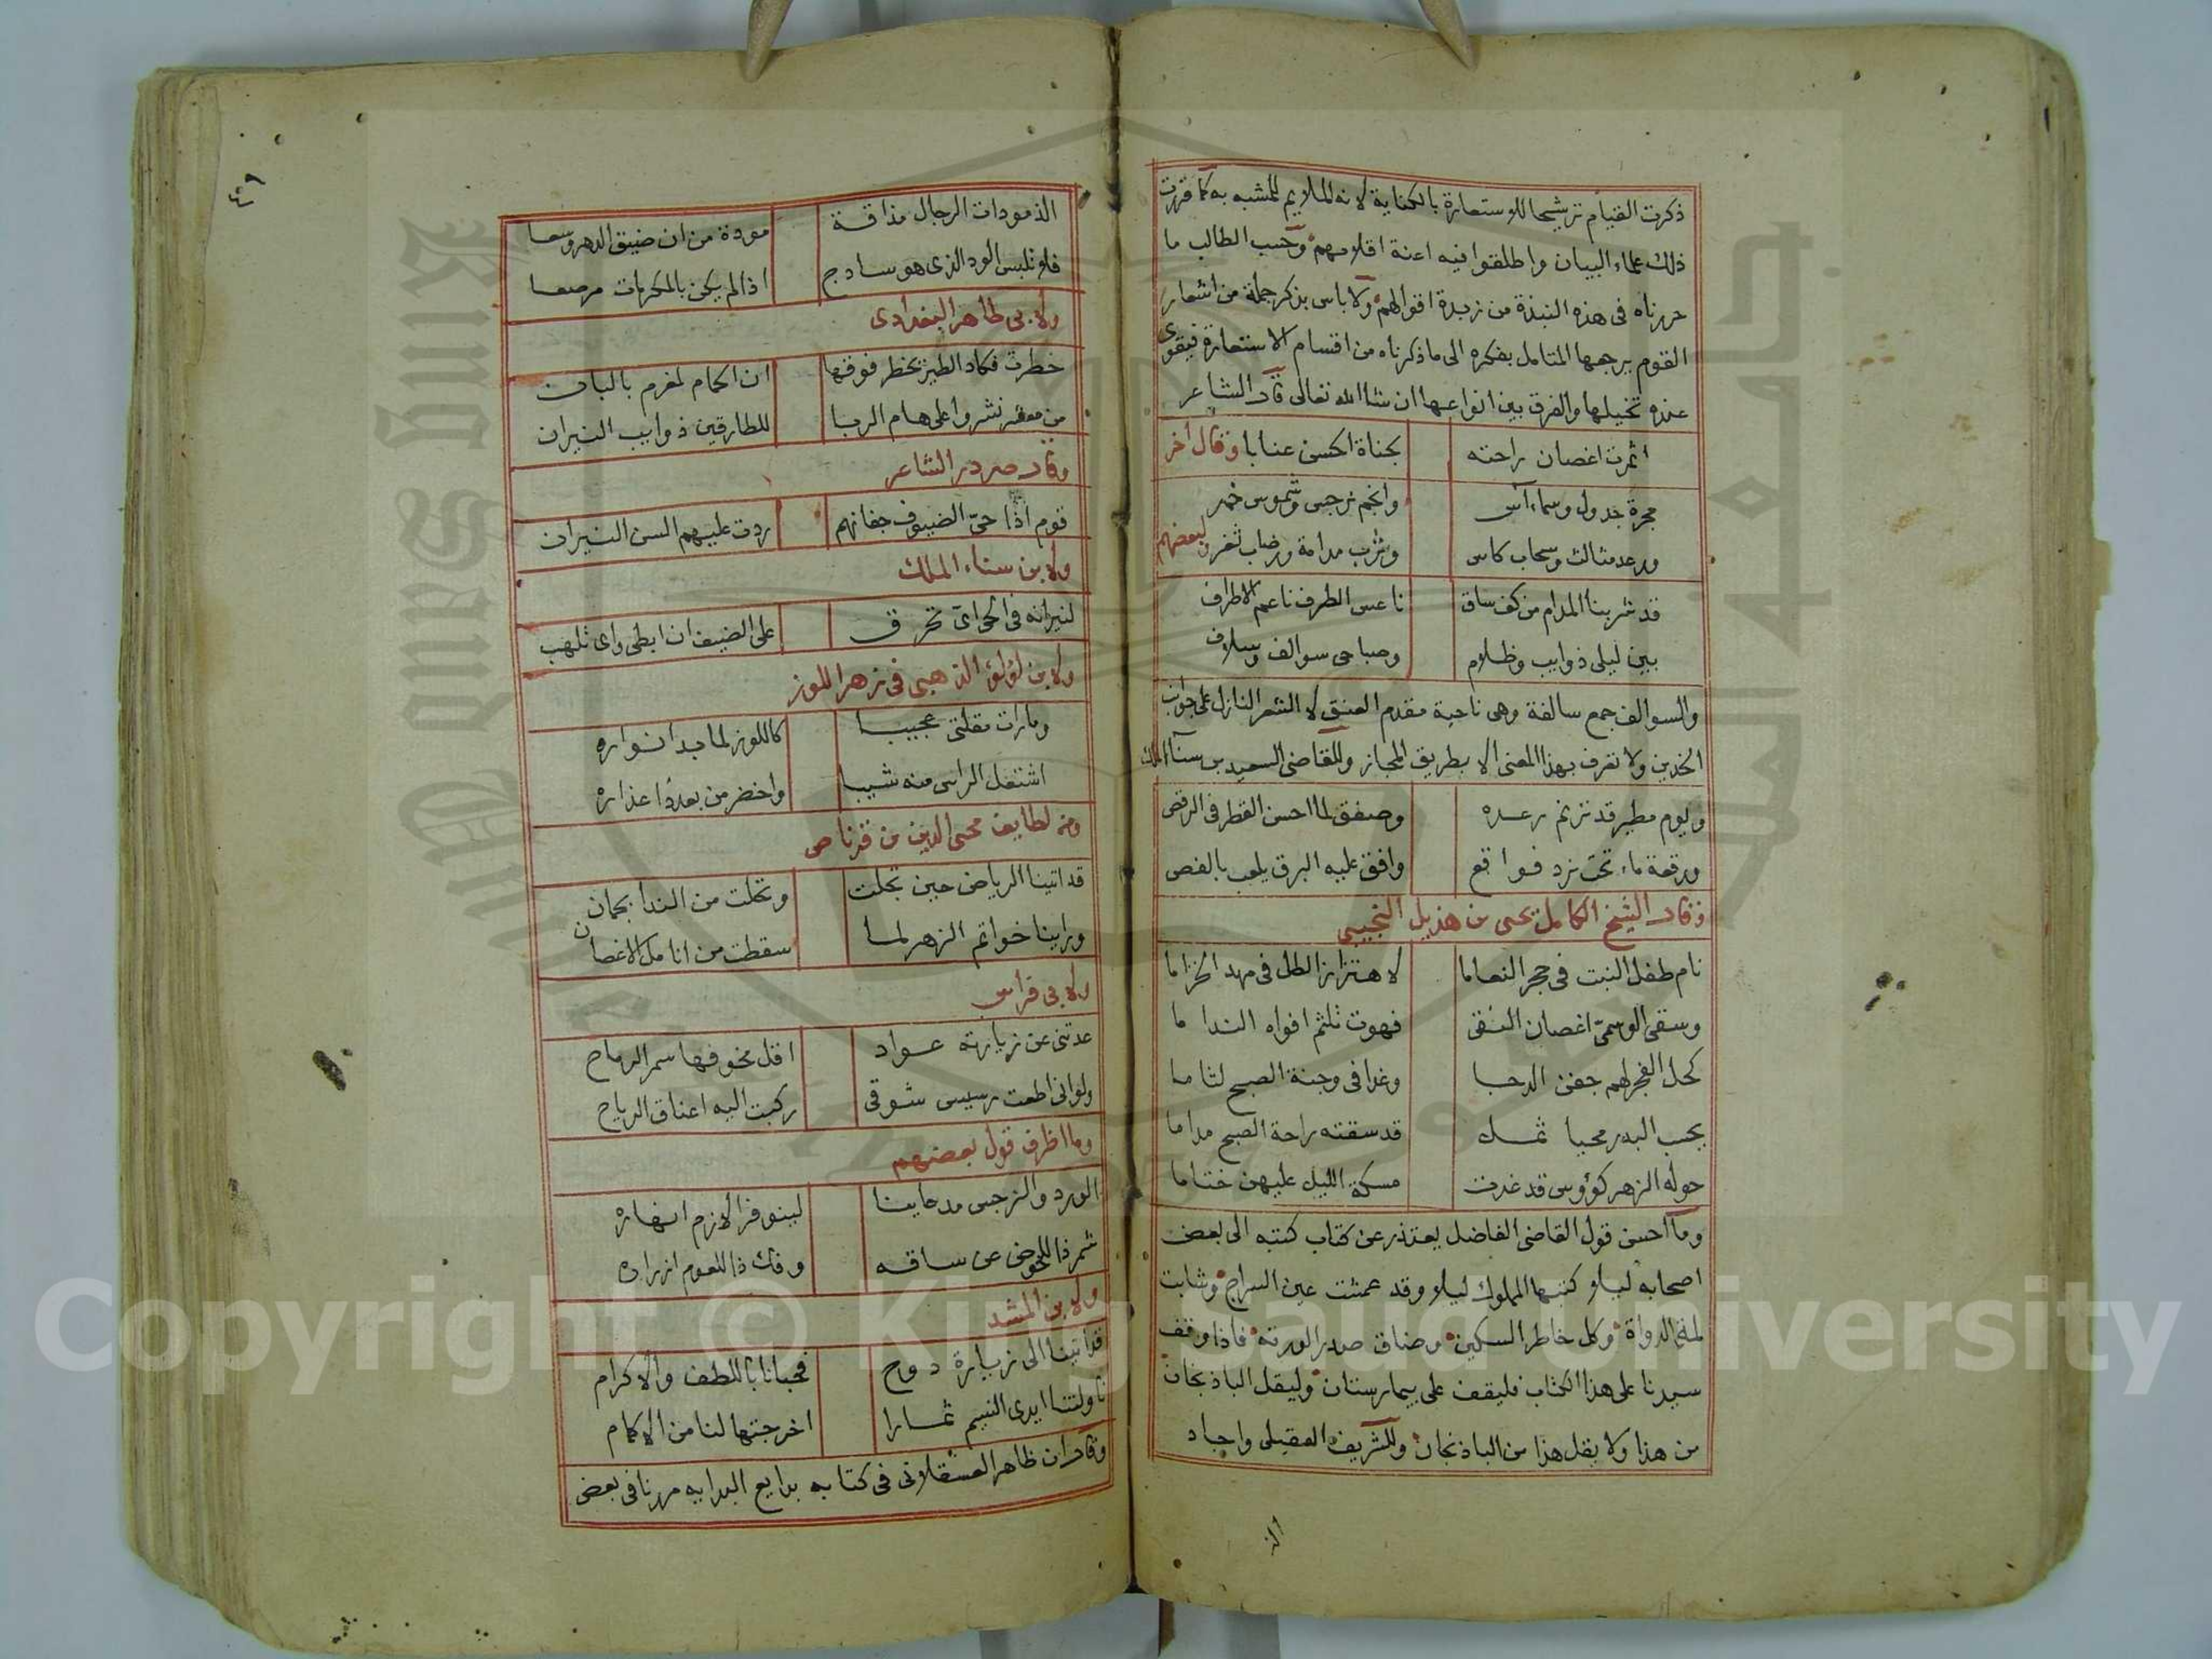 ذكرت القيام ترشيحا للاستعارة بالكناية لانه الملايم للمشبه به كما قررت
ذلك علماء البيان واطلقوا فيه اعنة اقلامهم وحسب الطالب ما
حررناه فى هذه النبذة من زبدة اقوالهم ولا باس بذكر جملة من اشعار
القوم يرجعها المتامل بفكره الى ما ذكرناه من اقسام الاستعارة فيقوى
عنده تخيلها والفرق بين انواعها ان شا الله تعالى قال الشاعر
اثمرت اغصان راحته بجناة الحسن عنابا وقال اخر
مجرة جدول وسماء آس وانجم نرجس وشموس خمر
ورعد مثالث وسحاب كاس وشرب مدامة ورضاب ثغر ولبعضهم
قد شربنا المدام من كف ساق ناعس الطرف ناعم الاطراف
بين ليلى ذوايب وظلام وصباحى سوالف وسلاف
والسوالف جمع سالفة وهى ناحية مقدم العنق لا الشعر النازل على جوانب
الخدين ولا تعرف بهذا المعنى الا بطريق المجاز وللقاضى السعيد بن سنآ الملك
ويوم مطير قد ترنم رعده وصفق لما احسن القطر فى الرقص
ورقعة ماء تحت نرد فواقع وافق عليه البرق يلعب بالفص
وقال الشيخ الكامل يحيى بن هذيل التجيبى
نام طفل النبت فى حجر النعاما لاهتزاز الطل فى مهد الخزاما
وسقى الوسمىّ اغصان النقى فهوت تلثم افواه الندا ما
كحل الفجر لهم جفن الدجا وغدا فى وجنة الصبح لثاما
يحسب البدر محيا ثمل قد سقته راحة الصبح مداما
حوله الزهر كؤوس قد غدت مسكة الليل عليهن ختاما
وما احسن قول القاضى الفاضل يعتذر عن كتاب كتبه الى بعض
اصحابه ليلا كتبها المملوك ليلا وقد عمشت عين السراج وشابت
لمة الدواة وكل خاطر السكين وضاق صدر الورقة فاذا وقف
سيدنا على هذا الكتاب فليقف على بيمارستان وليقل الباذنجان
من هذا ولا يقل هذا من الباذنجان وللشريف العقيلى واجاد
الذ
٤٦
الذ مودات الرجال مذاقة مودة من ان ضيق الدهر وسعا
فلا تلبس الود الذى هو ساذج اذا لم يكن بالمكرمات مرصعا
ولابى طاهر البغدادى
خطرت فكاد الطير يخطر فوقها ان الحمام لمغرم بالبان
من معشر نشروا على هام الربا للطارقين ذوايب النيران
وقال صردر الشاعر
قوم اذا حىّ الضيوف جفانهم ردت عليهم السن النيران
ولابن سناء الملك
لنيرانه فى الحى اى تحرق على الضيف ان ابطى واى تلهب
ولابن لؤلؤ الذهبى فى زهر اللوز
وما رات مقلتى عجيبا كاللوز لما بدا نواره
اشتعل الراس منه شيبا واخضر من بعد ذا عذاره
ومن لطايف محيى الدين بن قرناص
قد اتينا الرياض حين تجلت وتحلت من الندا بجمان
وراينا خواتم الزهر لما سقطت من انامل الاغصان
ولابى فراس
عدتنى عن زيارته عواد اقل مخوفها سمر الرماح
ولوانى اطعت رسيس شوقى ركبت اليه اعناق الرياح
وما اظرف قول بعضهم
الورد والنرجس مذ عاينا لينوفرا لازم انهاره
شمر ذا للخوض عن ساقه وفك ذا للعوم ازراره
ولابن المشد
قد اتينا الى زيارة دوح فحبانا باللطف والاكرام
ناولتنا ايدى النسيم ثمارا اخرجتها لنا من الاكمام
وقال ابن ظاهر العسقلانى فى كتابه بدايع البدايه مررنا فى بعض
Copyright © King Saud University